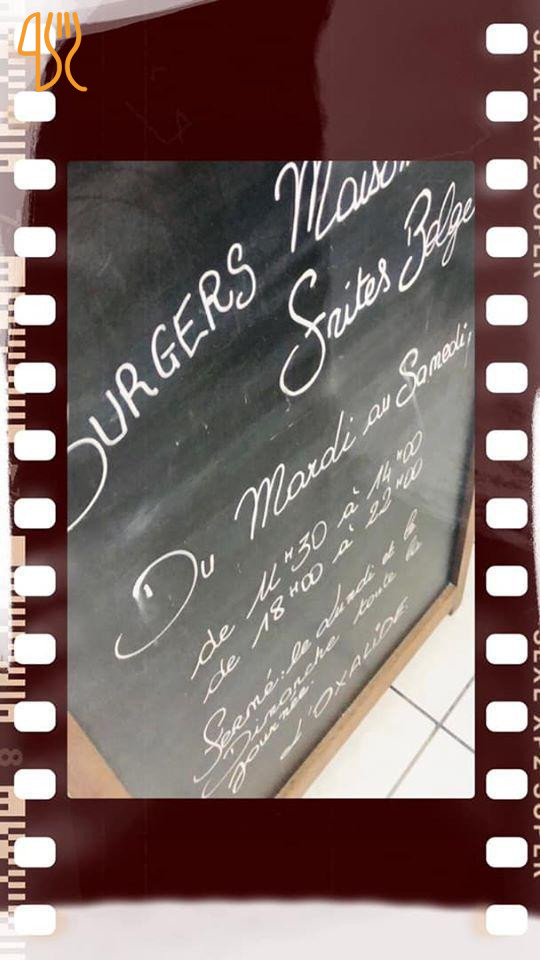 BURGERS Maison
Frites Belge
Du Mardi au Samedi,
de 11H30 à 14H00
de 18H00 à 22H00
Fermé: le Lundi et le
Dimanche toute la
journée.
L'OXALIDE.